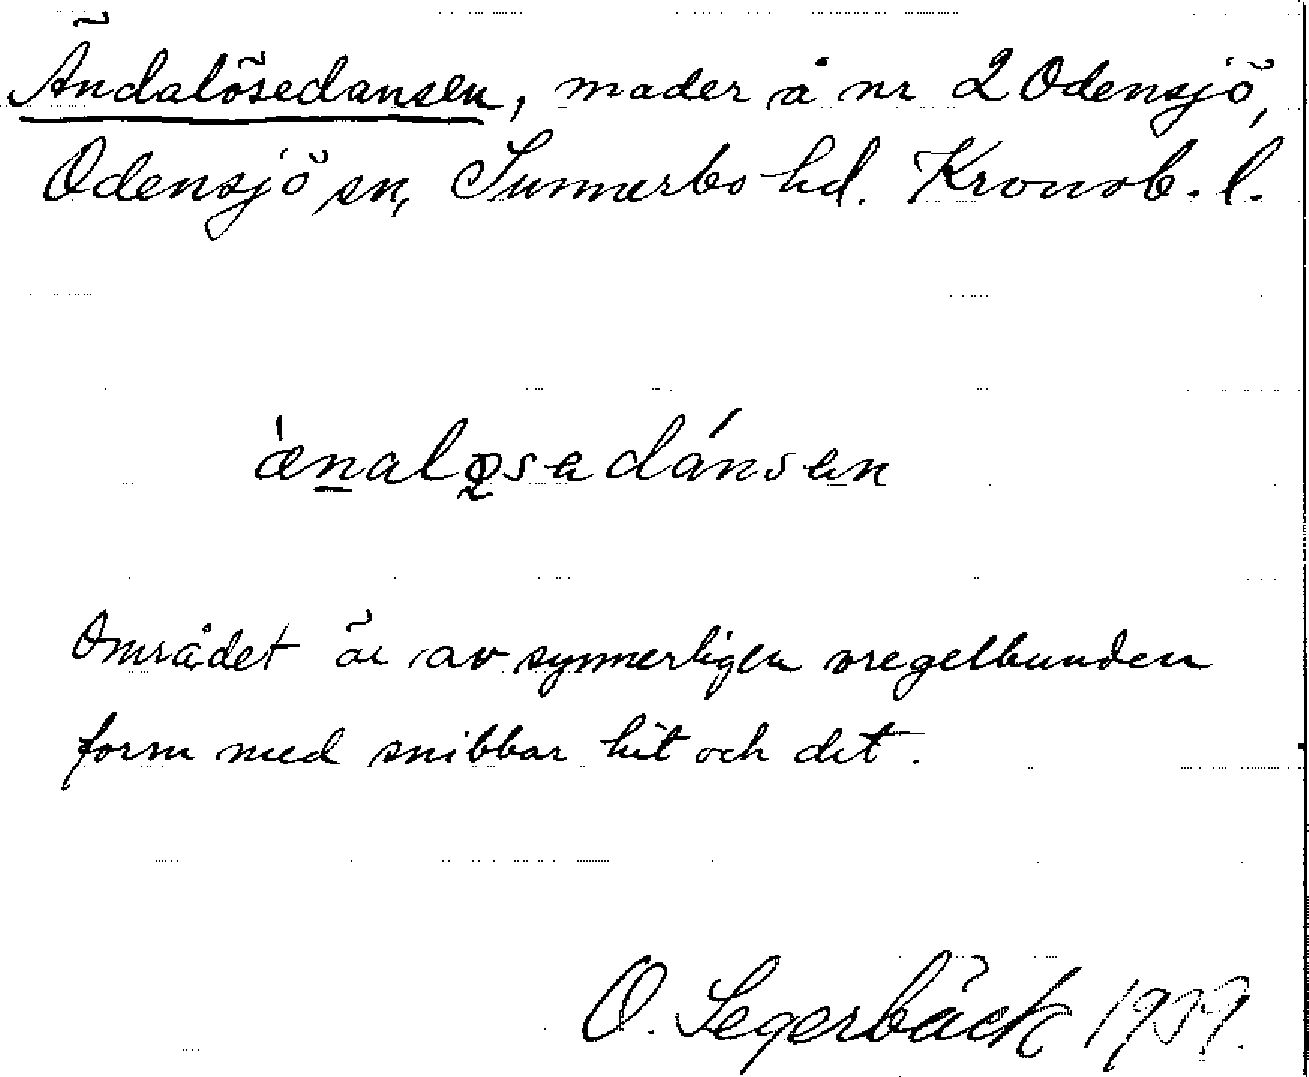 Ändalösedansen, mader å nr 2 Odensjö,
Odensjö sn, Sunnerbo hd. Kronob. l.
ænaløsadánsan
Området är av synnerligen oregelbunden
form med snibbar hit och dit.
O. Segerbäck 1939.